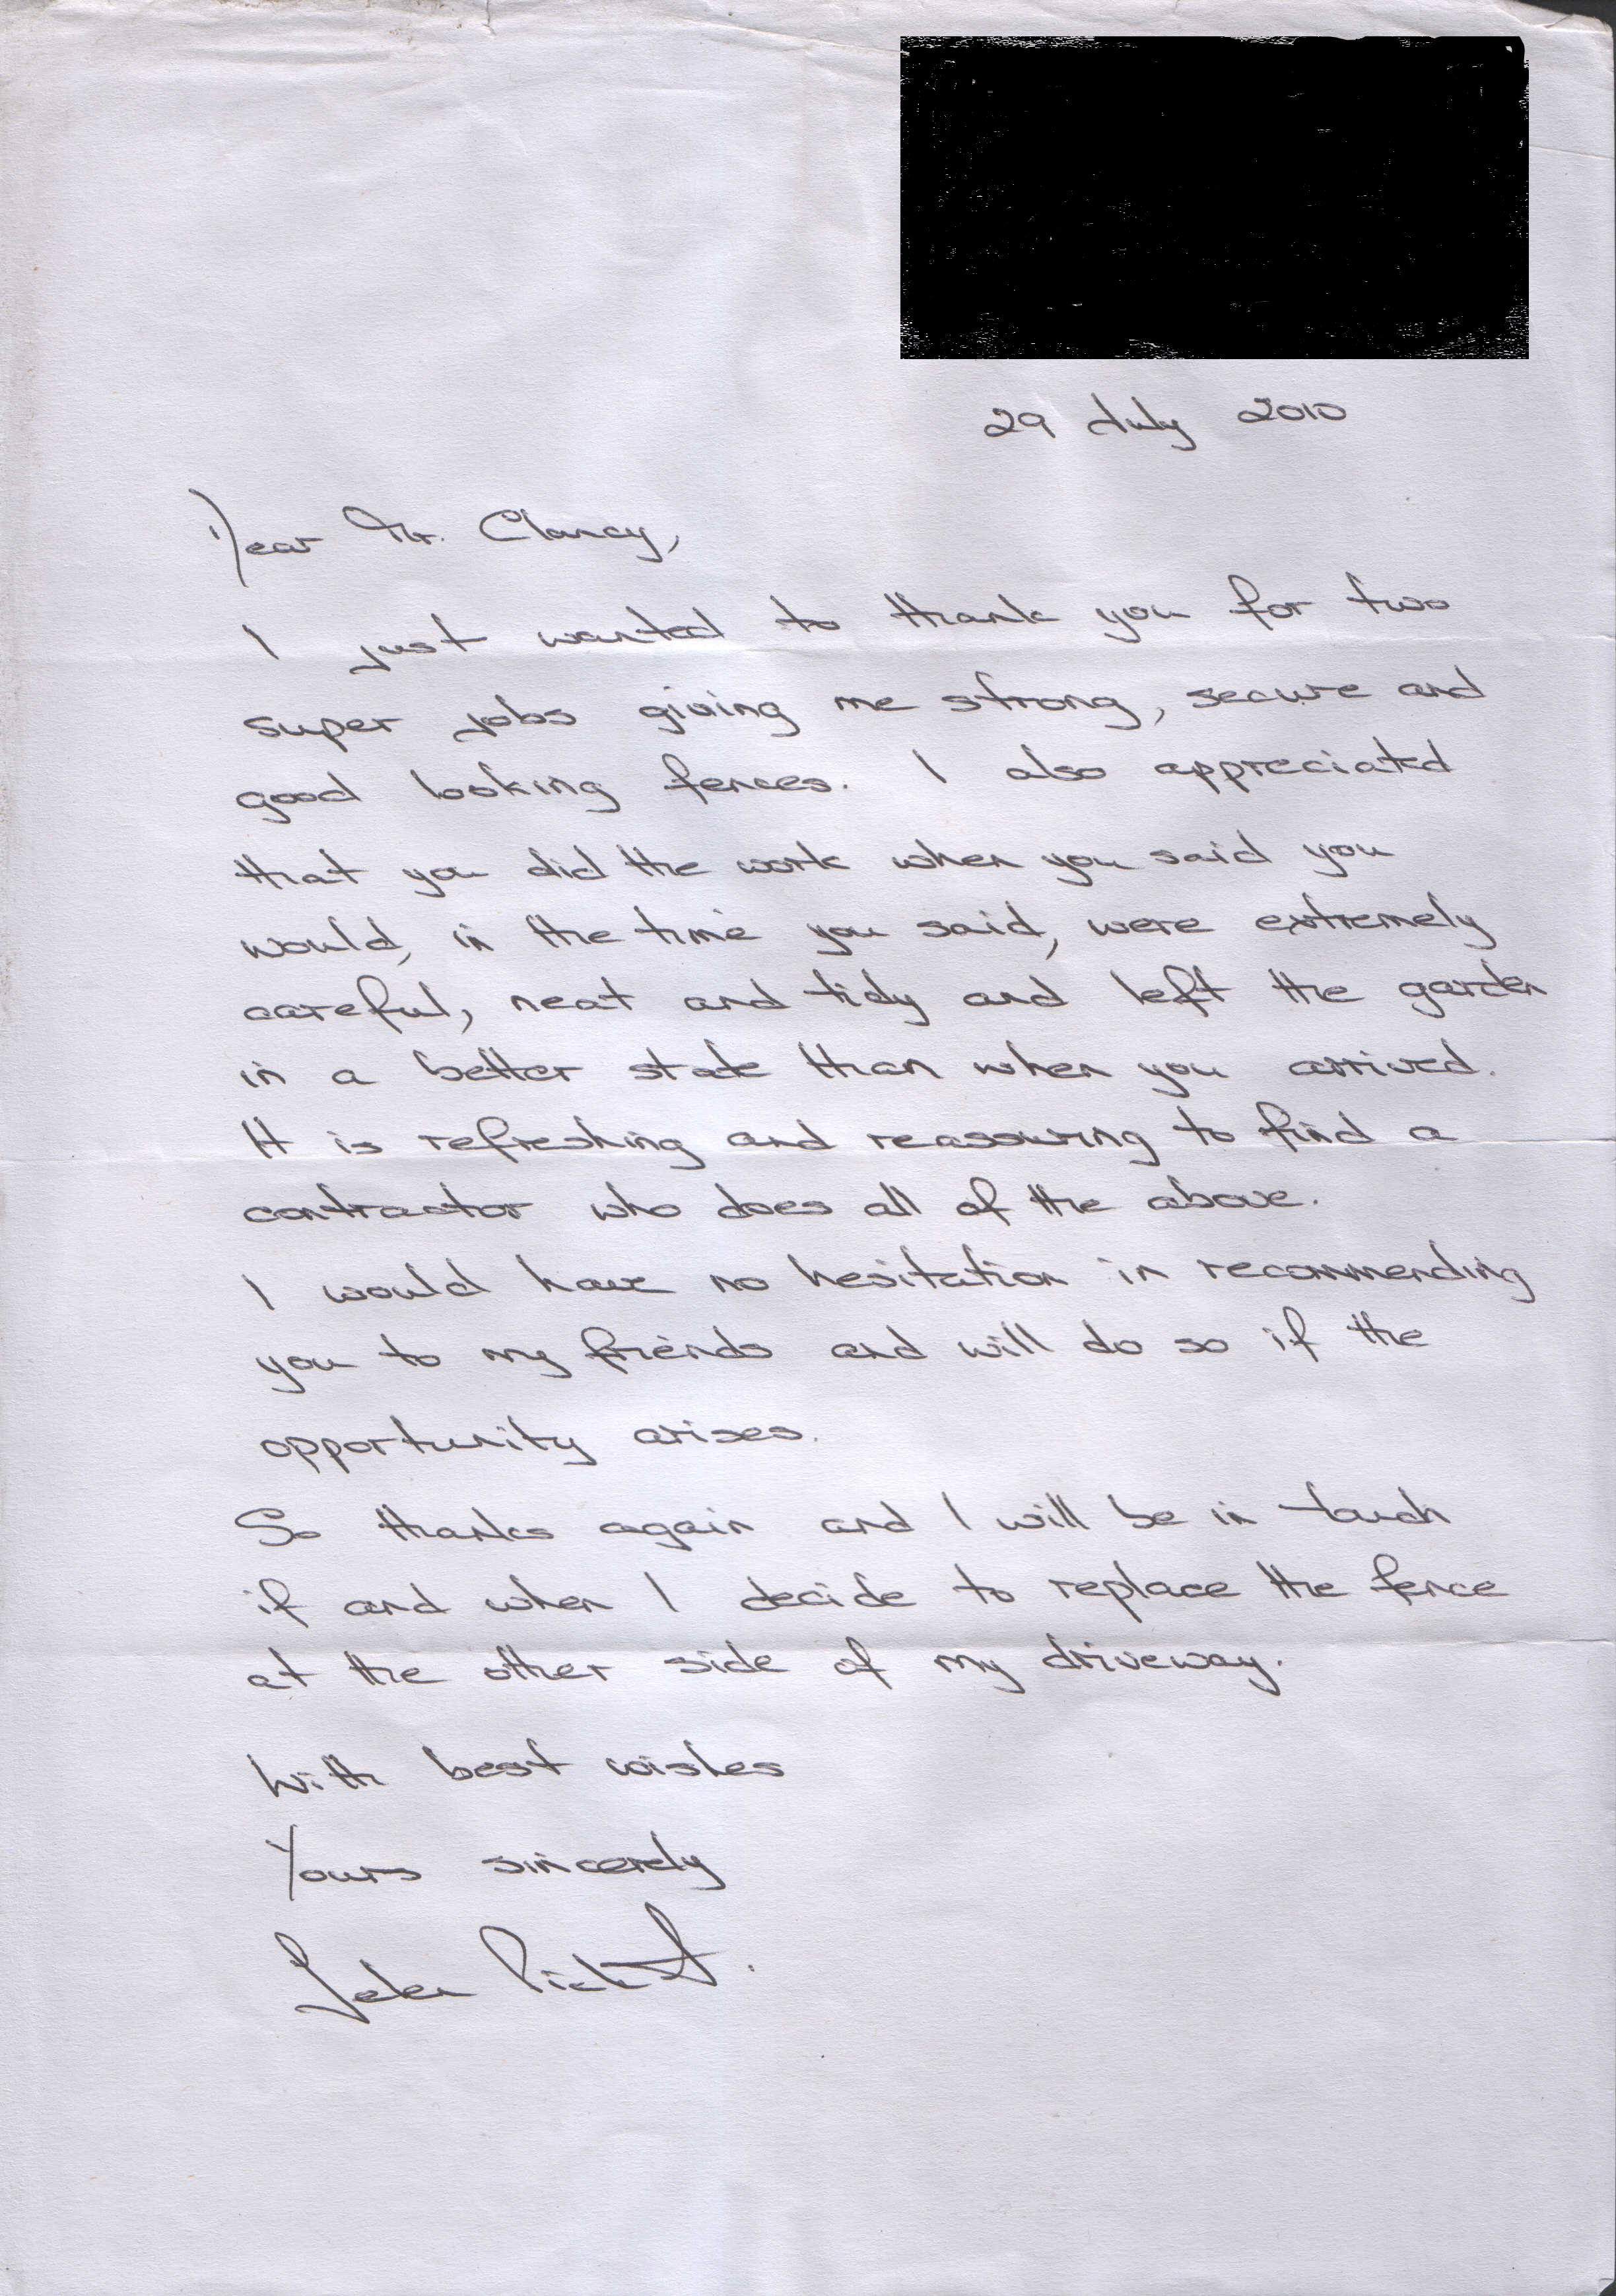 29 July 2010
Dear Mr. Clancy,
I just wanted to thank you for two
super jobs giving me strong, secure and
good looking fences. I also appreciated
that you did the work when you said you
would, in the time you said, were extremely
careful, neat and tidy and left the garden
in a better state than when you arrived.
It is refreshing and reassuring to find a
contractor who does all of the above.
I would have no hesitation in recommending
you to my friends and will do so if the
opportunity arises.
So thanks again and I will be in touch
if and when I decide to replace the fence
at the other side of my driveway.
With best wishes
Yours sincerely